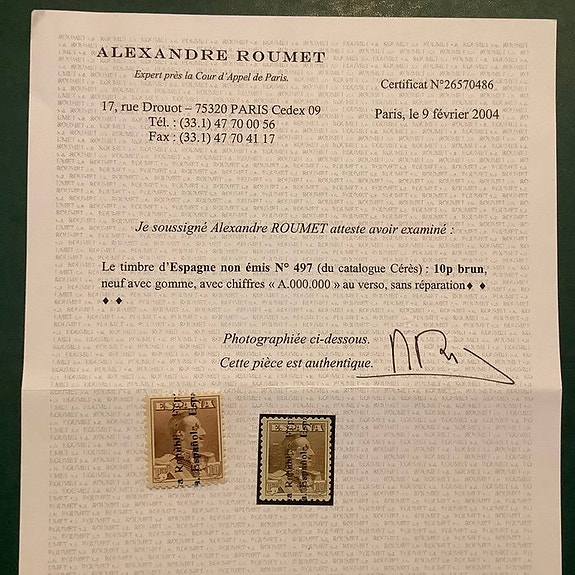 ALEXANDRE ROUMET
Expert près la Cour d'Appel de Paris.
Certificat N°26570486
17, rue Drouot – 75320 PARIS Cedex 09
Paris, le 9 février 2004
Tél. : (33.1) 47 70 00 56
Fax : (33.1) 47 70 41 17
Je soussigné Alexandre ROUMET atteste avoir examiné :
Le timbre d'Espagne non émis N° 497 (du catalogue Cérès) : 10p brun,
neuf avec gomme, avec chiffres « A.000.000 » au verso, sans réparation♦ ♦
♦ ♦
Photographiée ci-dessous.
Cette pièce est authentique.
ESPAÑA
ESPAÑA